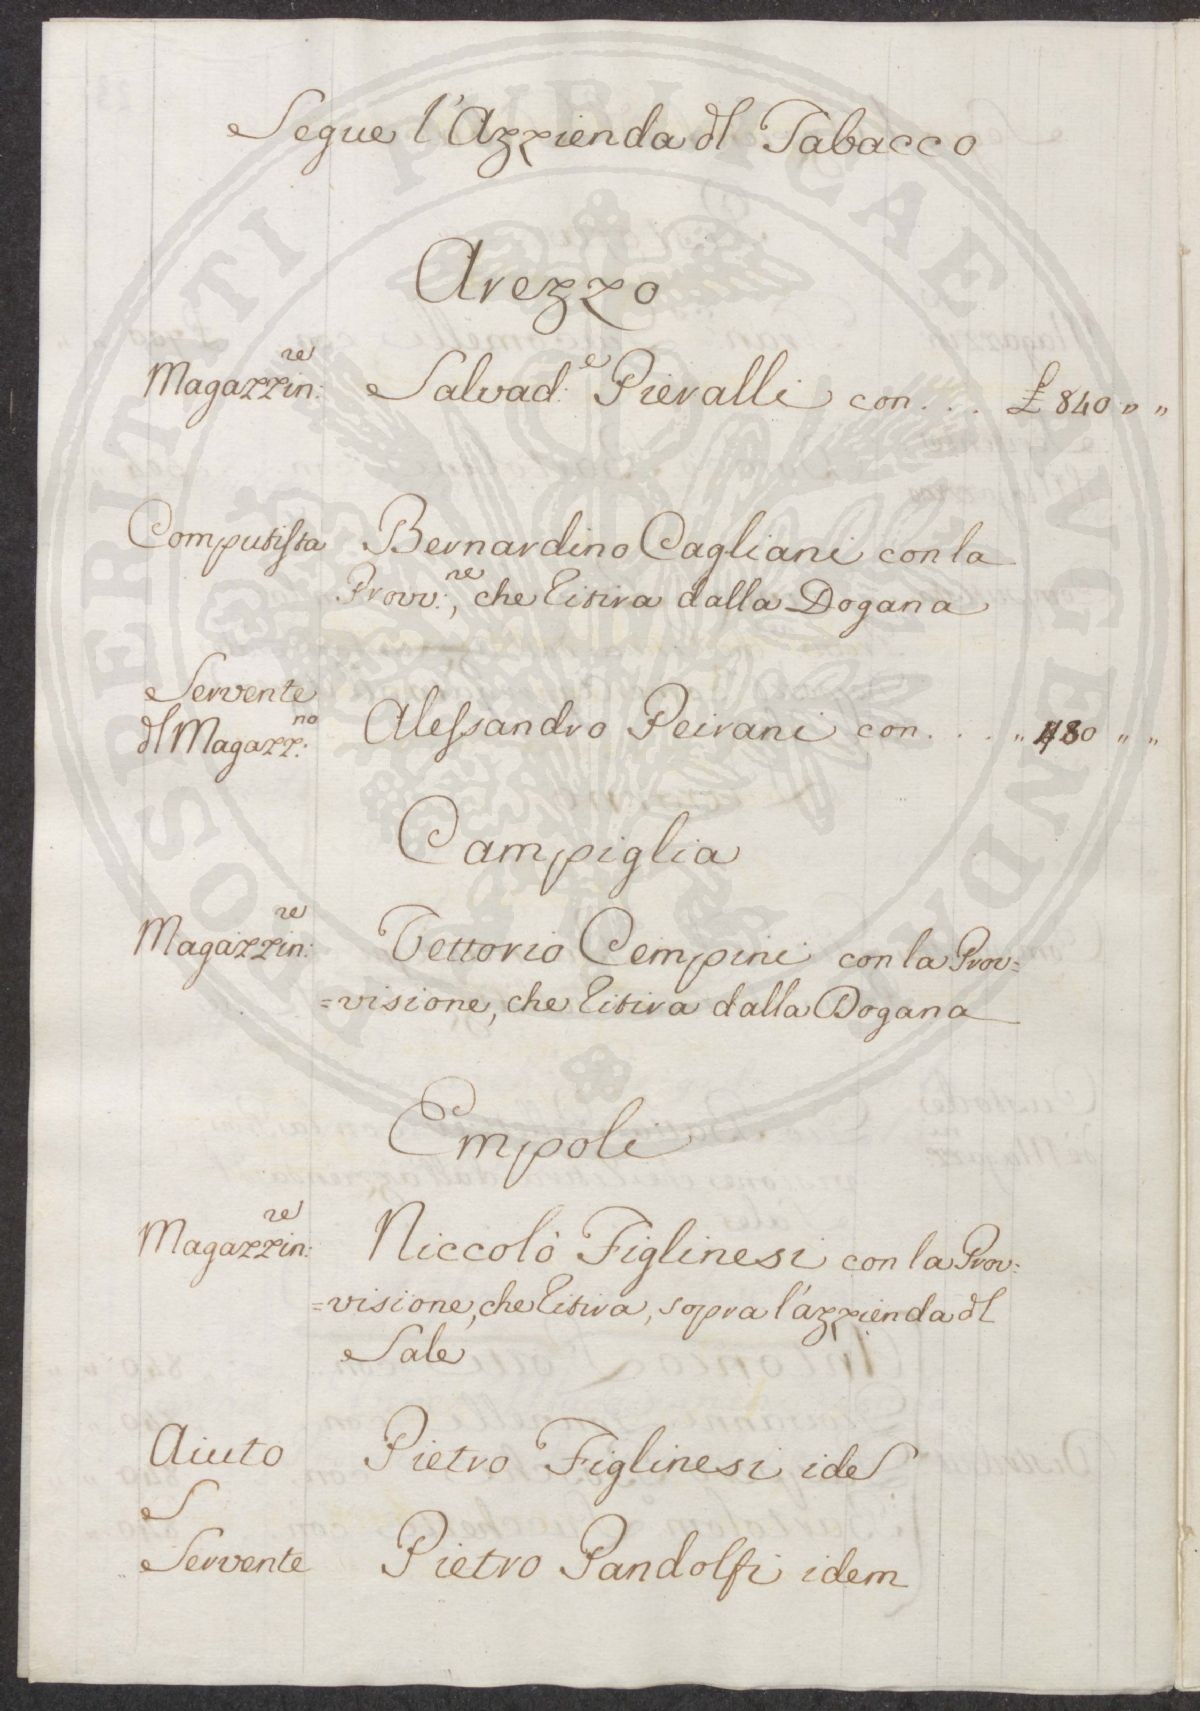 Segue l'Azzienda dl Tabacco
Arezzo
Magazzin:re Salvad:e Pieralli con . . . £ 840 " "
Computista Bernardino Cagliani con la
Provv:ne, che titira dalla Dogana
Servente
dl Magazz:no Alessandro Peirani con . . . " 180 " "
Campiglia
Magazzin:re Vettorio Cempini con la Prov=
=visione, che titira dalla Dogana
Empoli
Magazzin:re Niccolò Figlinesi con la Prov:
=visione, che titira, sopra l'azzienda dl
Sale
Aiuto Pietro Figlinesi ide
Servente Pietro Pandolfi idem
PROSPERITATI PUBLICAE AUGENDAE